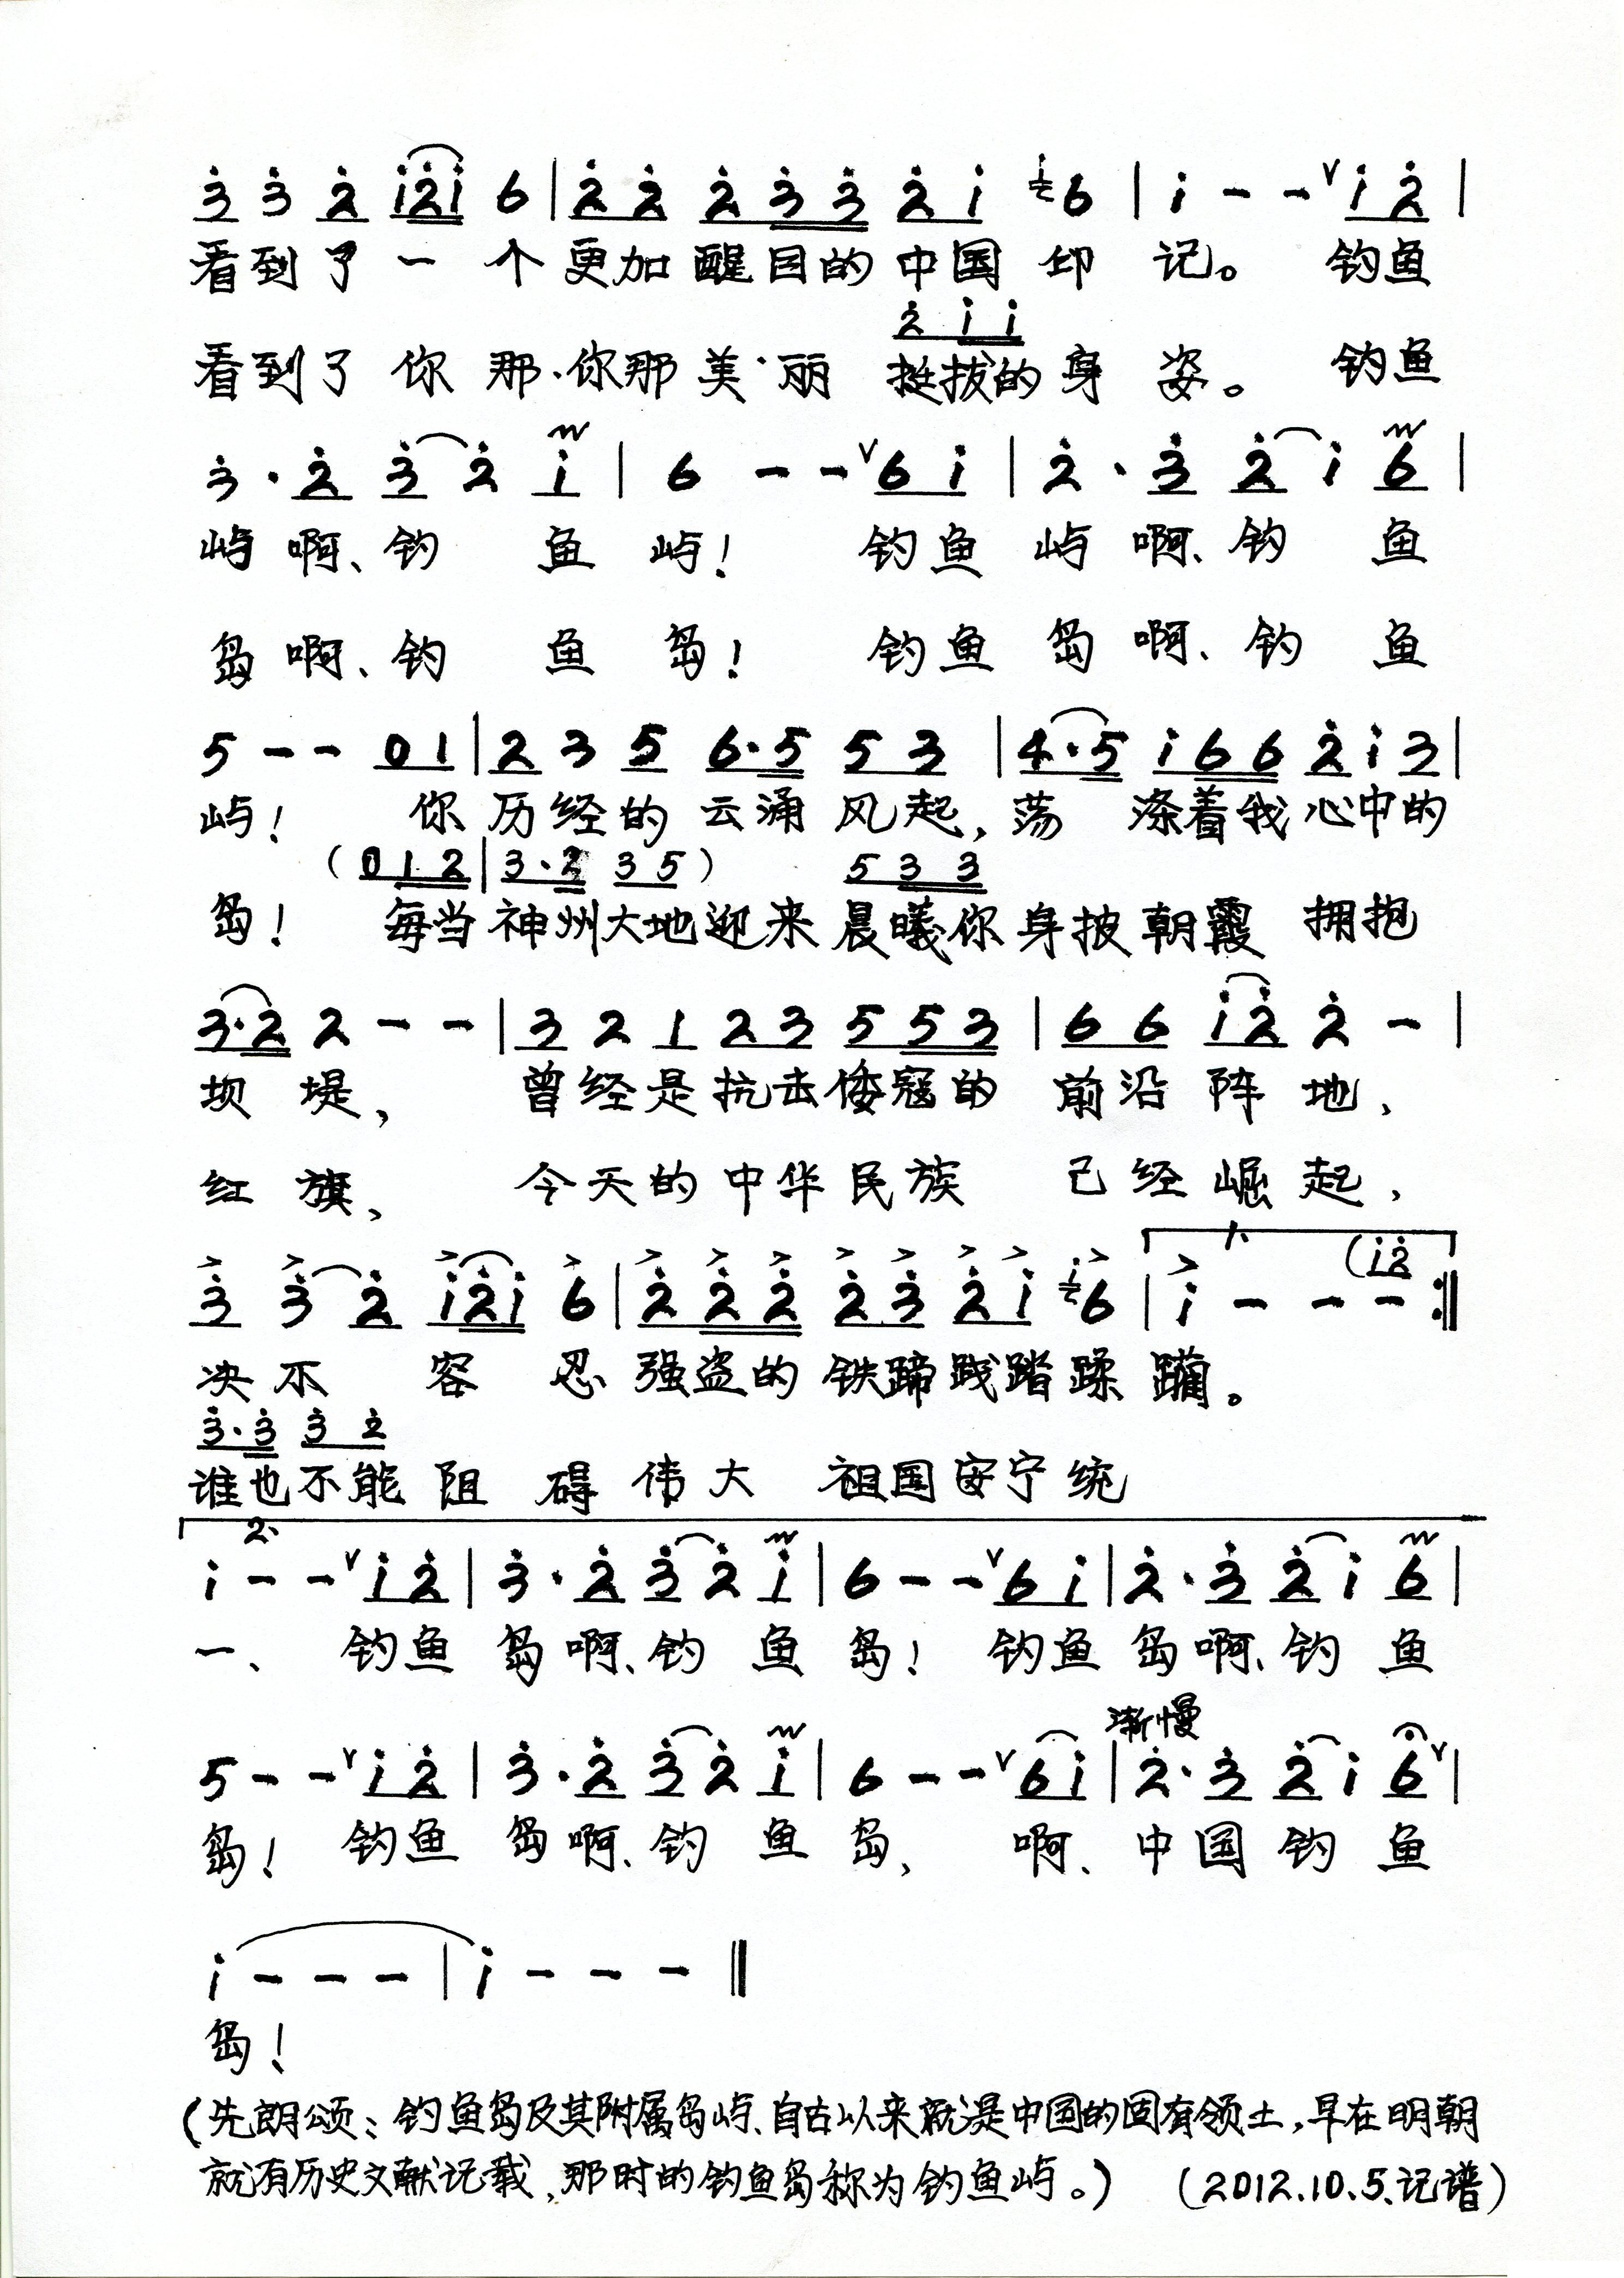 3 3 2 i2i 6 | 2 2 2 3 3 2 i 6 | i - - i 2 |
看到了一个更加醒目的中国印记。 钓鱼
2 i i
看到了你那·你那美·丽 挺拔的身姿。 钓鱼
3 · 2 3 2 i | 6 - - 6 i | 2 · 3 2 i 6 |
屿啊、钓鱼屿! 钓鱼屿啊、钓鱼
岛啊、钓鱼岛! 钓鱼岛啊、钓鱼
5 - - 0 1 | 2 3 5 6·5 5 3 | 4·5 i 6 6 2 i 3 |
屿! 你历经的云涌风起,荡涤着我心中的
(0 1 2 | 3·2 3 5) 5 3 3
岛! 每当神州大地迎来晨曦你身披朝霞 拥抱
3·2 2 - - | 3 2 1 2 3 5 5 3 | 6 6 i 2 2 - |
坝堤, 曾经是抗击倭寇的 前沿阵地、
红旗、 今天的中华民族 已经崛起、
1.
3 3 2 i2i 6 | 2 2 2 2 3 2 i 6 | i - - - (i2 :||
决不容忍强盗的铁蹄践踏蹂躏。
3·3 3 2
谁也不能阻碍伟大祖国安宁统
2.
i - - i 2 | 3 · 2 3 2 i | 6 - - 6 i | 2 · 3 2 i 6 |
一、 钓鱼岛啊、钓鱼岛! 钓鱼岛啊、钓鱼
渐慢
5 - - i 2 | 3 · 2 3 2 i | 6 - - 6 i | 2 · 3 2 i 6 |
岛! 钓鱼岛啊、钓鱼岛、 啊、中国钓鱼
i - - - | i - - - ||
岛!
(先朗颂:钓鱼岛及其附属岛屿、自古以来就是中国的固有领土,早在明朝
就有历史文献记载、那时的钓鱼岛称为钓鱼屿。) (2012.10.5.记谱)